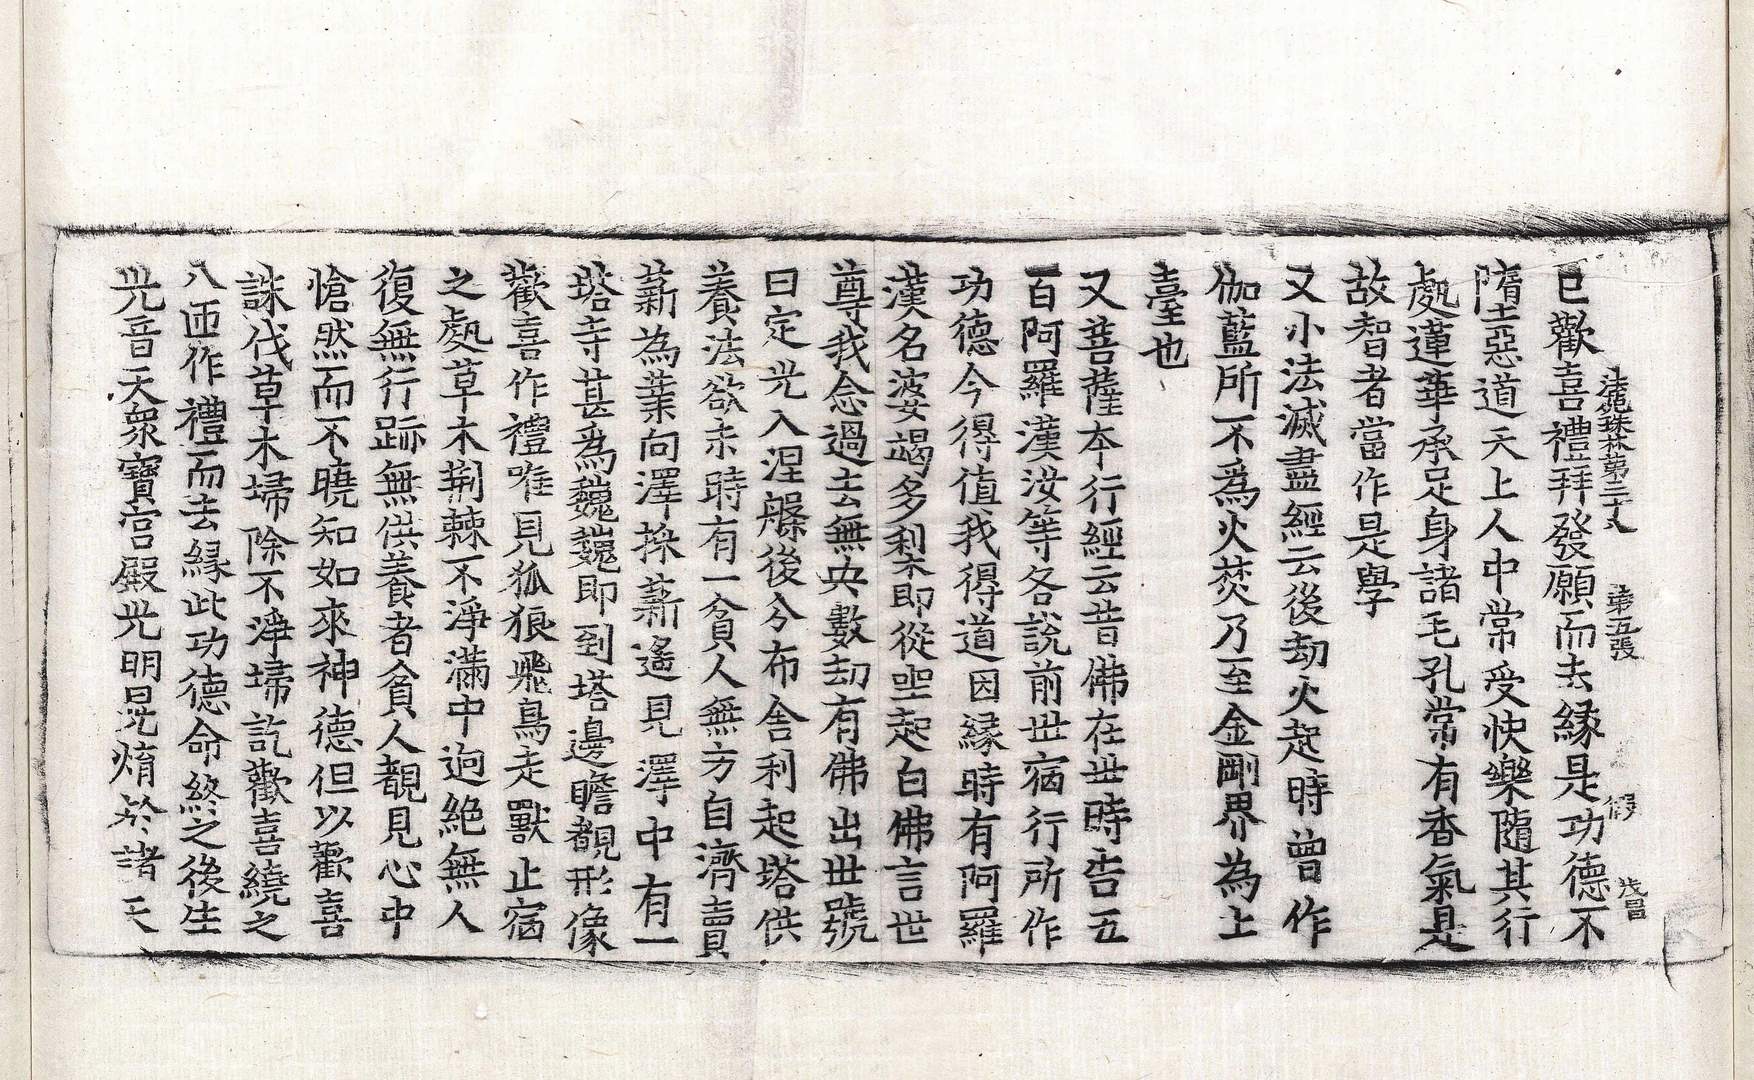 法苑珠林第三十八　第五張　得　茂昌
已歡喜禮拜發願而去縁是功德不
墮惡道天上人中常受快樂隨其行
處蓮華承足身諸毛孔常有香氣是
故智者當作是學
又小法滅盡經云後劫火起時曾作
伽藍所不爲火焚乃至金剛界為上
臺也
又菩薩本行經云昔佛在世時告五
百阿羅漢汝等各說前世宿行所作
功德今得值我得道因縁時有阿羅
漢名婆竭多梨即從坐起白佛言世
尊我念過去無央數劫有佛出世號
曰定光入涅槃後分布舍利起塔供
養法欲末時有一貧人無方自濟賣
薪為業向澤採薪遙見澤中有一
塔寺甚爲巍巍即到塔邊瞻覩形像
歡喜作禮唯見狐狼飛鳥走獸止宿
之處草木荆棘不淨滿中逈絶無人
復無行跡無供養者貧人覩見心中
愴然而不曉知如來神德但以歡喜
誅伐草木埽除不淨埽訖歡喜繞之
八匝作禮而去縁此功德命終之後生
光音天衆寶宫殿光明晃煟於諸天